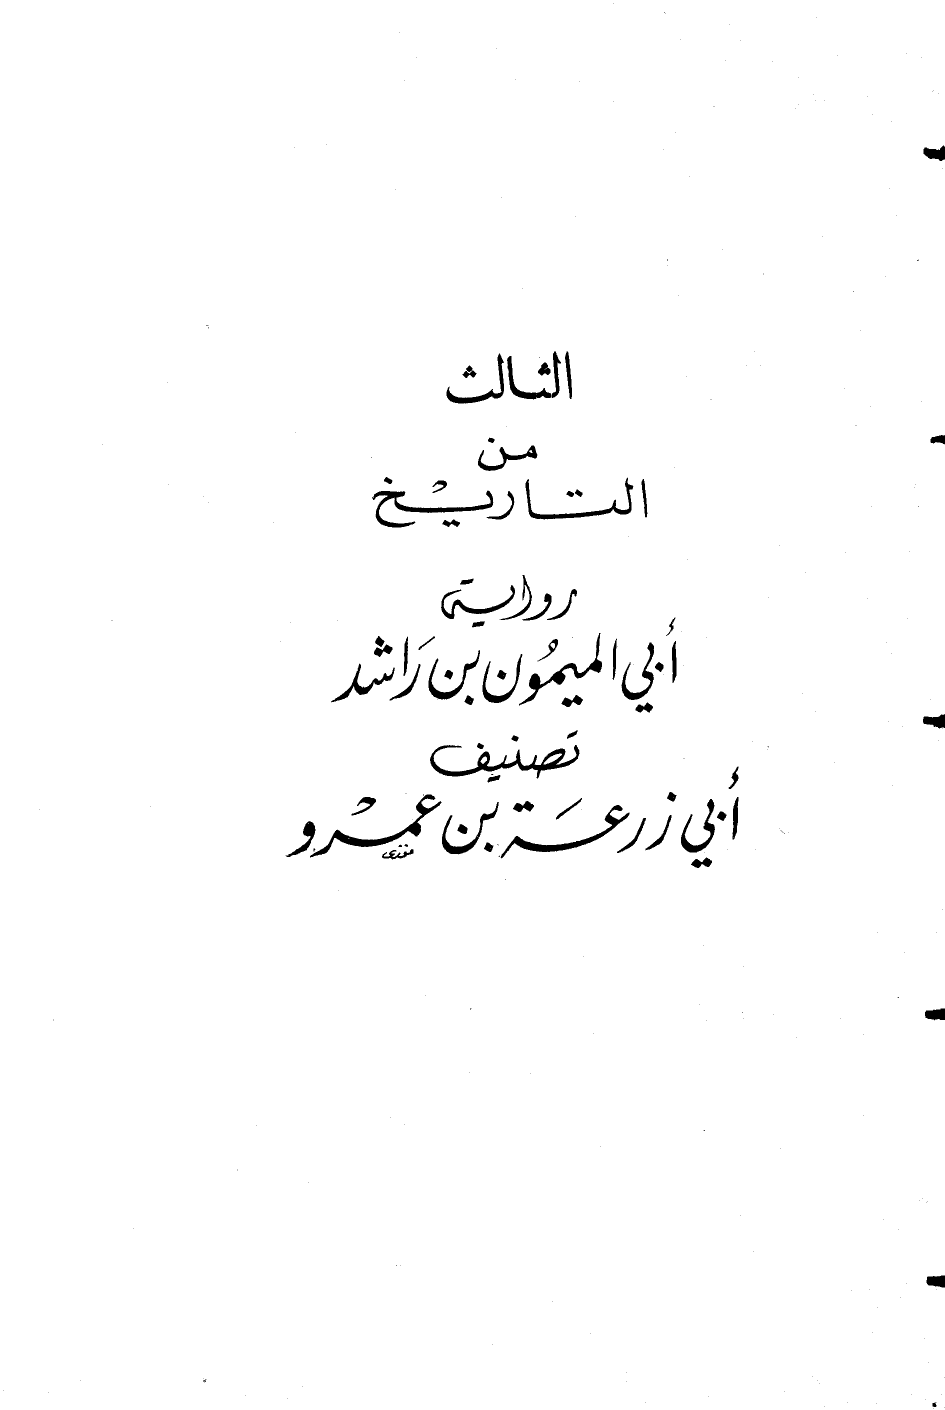 الثالث
من
التاريخ
رواية
أبي الميمُون بن رَاشد
تصنيف
أبي زرعَة بن عمرو